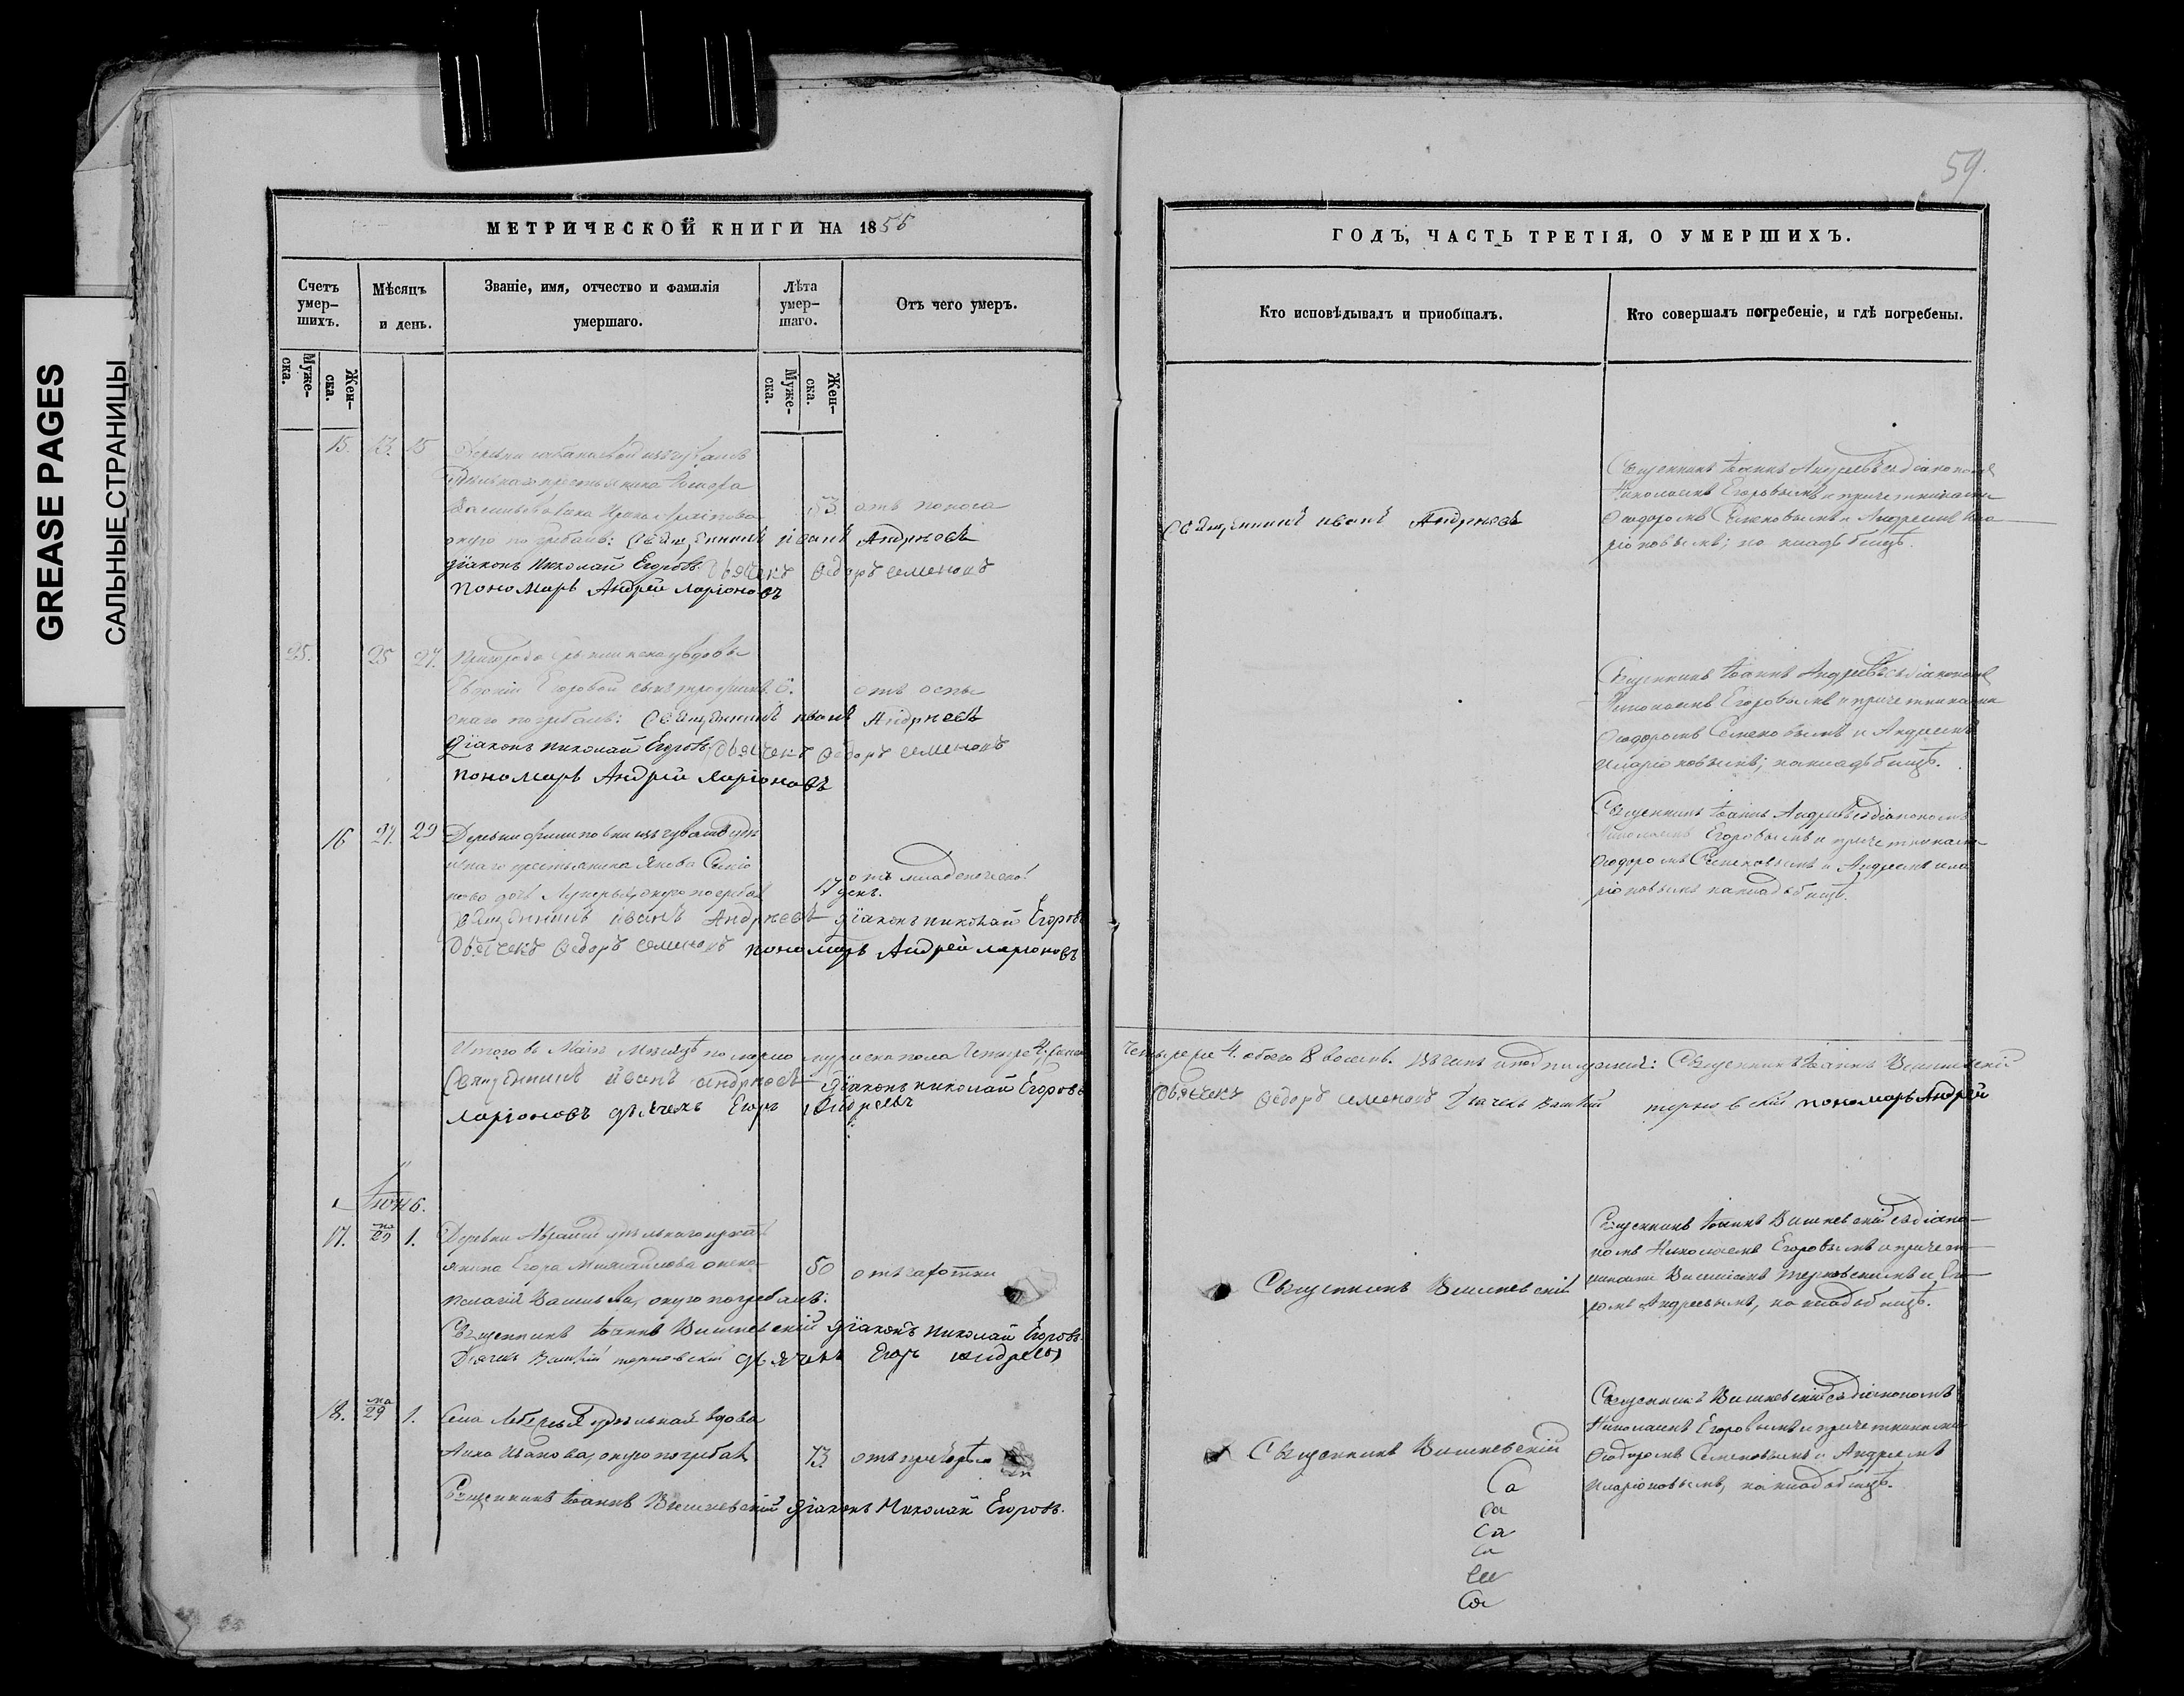 GREASE PAGES
САЛЬНЫЕ СТРАНИЦЫ
59.
МЕТРИЧЕСКОЙ КНИГИ НА 1855
Счетъ умер-шихъ.
Мѣсяцъ и день.
Званіе, имя, отчество и фамилія умершаго.
Лѣта умер-шаго.
Отъ чего умеръ.
Муже-ска.
Жен-ска.
Муже-ска.
Жен-ска.
15. 13. 15
53 отъ поноса
оную погребалъ: Священникъ Иванъ Андрѣевъ
Діаконъ Николай Егоровъ Дьячекъ Ѳедоръ Семеновъ
Пономарь Андрей Ларіоновъ
25. 25 27. Пригорода вдовы
Егоровой сынъ 6. отъ оспы
онаго погребалъ: Священникъ Иванъ Андрѣевъ
Діаконъ Николай Егоровъ Дьячекъ Ѳедоръ Семеновъ
Пономарь Андрей Ларіоновъ
16 27. 29 Деревни изъ чувашъ удѣ
льнаго крестьянина Якова
дочь оную погребал 17 ден. отъ младенческой
Священникъ Иванъ Андрѣевъ Діаконъ Николай Егоровъ
Дьячекъ Ѳедоръ Семеновъ Пономарь Андрей Ларіоновъ
Итого въ Маѣ Мѣсяцѣ померло мужеска пола четыре 4,
Священникъ Иванъ Андрѣевъ Діаконъ Николай Егоровъ
Ларіоновъ Дьячекъ Егоръ Андреевъ
Іюнь.
17. ма 29 1. Деревни удѣльнаго крест
янина Егора Михайлова жена
Васильева, оную погребалъ: 50 отъ чахотки
Священникъ Іоаннъ Вишневскій Діаконъ Николай Егоровъ
Дьячекъ Василій Терновскій Дьячекъ Егоръ Андреевъ
18. ма 29 1. Села удѣльная вдова
Анна Иванова, оную погребалъ 73. отъ
Священникъ Іоаннъ Вишневскій Діаконъ Николай Егоровъ.
ГОДЪ, ЧАСТЬ ТРЕТІЯ, О УМЕРШИХЪ.
Кто исповѣдывалъ и пріобщалъ.
Кто совершалъ погребеніе, и гдѣ погребены.
Священникъ Иванъ Андрѣевъ
Священникъ Іоаннъ Андреевъ съ діакономъ
Николаемъ Егоровымъ и причетниками
Ѳеодоромъ Семеновымъ и Андреемъ Ила
ріоновымъ; на кладбищѣ.
Священникъ Іоаннъ Андреевъ съ діакономъ
Николаемъ Егоровымъ и причетниками
Ѳеодоромъ Семеновымъ и Андреемъ
Иларіоновымъ; на кладбищѣ.
Священникъ Іоаннъ Андреевъ съ діакономъ
Николаемъ Егоровымъ и причетниками
Ѳеодоромъ Семеновымъ и Андреемъ Ила
ріоновымъ на кладбищѣ.
четыре 4. обоего 8 Священникъ Іоаннъ Вишневскій
Дьячекъ Ѳедоръ Семеновъ Дьячекъ Василій Терновскій Пономарь Андрей
Священникъ Вишневскій
Священникъ Іоаннъ Вишневскій съ діако
номъ Николаемъ Егоровымъ и причет
никами Василіемъ Терновскимъ и Его
ромъ Андреевымъ, на кладбищѣ.
Священникъ Вишневскій
Священникъ Вишневскій съ діакономъ
Николаемъ Егоровымъ и причетниками
Ѳеодоромъ Семеновымъ и Андреемъ
Иларіоновымъ, на кладбищѣ.
Са
Са
Са
Са
Са